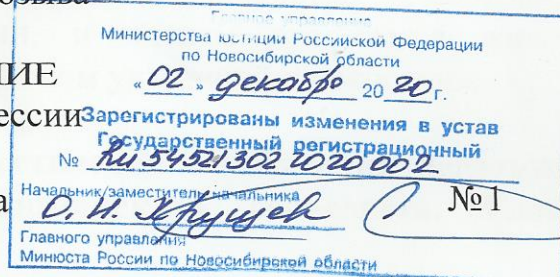 озыва
Главное управление
Министерства юстиции Российской Федерации
по Новосибирской области
НИЕ
«02» декабря 2020 г.
ессии
Зарегистрированы изменения в устав
Государственный регистрационный
№ Ru 545213022020002
а
Начальник/заместитель начальника
О. Н. Хрущев
№ 1
Главного управления
Минюста России по Новосибирской области